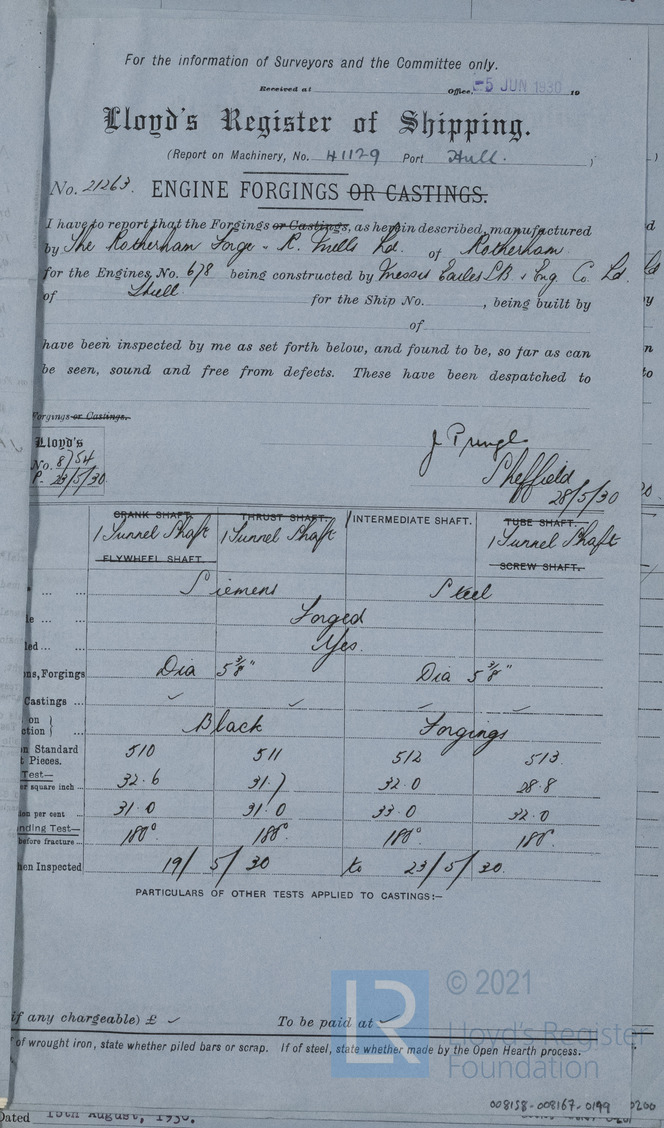 For the information of Surveyors and the Committee only.
Received at Office, -5 JUN 1930 19
Lloyd's Register of Shipping.
(Report on Machinery, No. 41129 Port Hull. )
No. 21263. ENGINE FORGINGS OR CASTINGS.
I have to report that the Forgings or Castings, as herein described, manufactured
by The Rotherham Forge & R. Mills Ld. of Rotherham
for the Engines, No. 678 being constructed by Messrs Earles SB & Eng. Co. Ld.
of Hull for the Ship No. , being built by
of
have been inspected by me as set forth below, and found to be, so far as can
be seen, sound and free from defects. These have been despatched to
Forgings or Castings.
Lloyd's
No. 8754
P. 23/5/30
J Pringle
Sheffield
28/5/30
CRANK SHAFT. THRUST SHAFT. INTERMEDIATE SHAFT. TUBE SHAFT.
1 Tunnel Shaft 1 Tunnel Shaft 1 Tunnel Shaft
FLYWHEEL SHAFT. SCREW SHAFT.
Siemens Steel
Forged
Yes.
ns, Forgings Dia 5 3/8" Dia 5 3/8"
Castings ... ✓ ✓ ✓ ✓
on
ction Black Forgings
n Standard
t Pieces. 510 511 512 513
Test—
er square inch ... 32.6 31.7 32.0 28.8
ion per cent 31.0 31.0 33.0 32.0
nding Test—
before fracture... 180° 180° 180° 180°
en Inspected 19/5/30 to 23/5/30.
PARTICULARS OF OTHER TESTS APPLIED TO CASTINGS:—
if any chargeable) £ ✓ To be paid at ✓
of wrought iron, state whether piled bars or scrap. If of steel, state whether made by the Open Hearth process.
LR
© 2021
Lloyd's Register
Foundation
008158-008167-0199
0200
Dated 15th August, 1930.